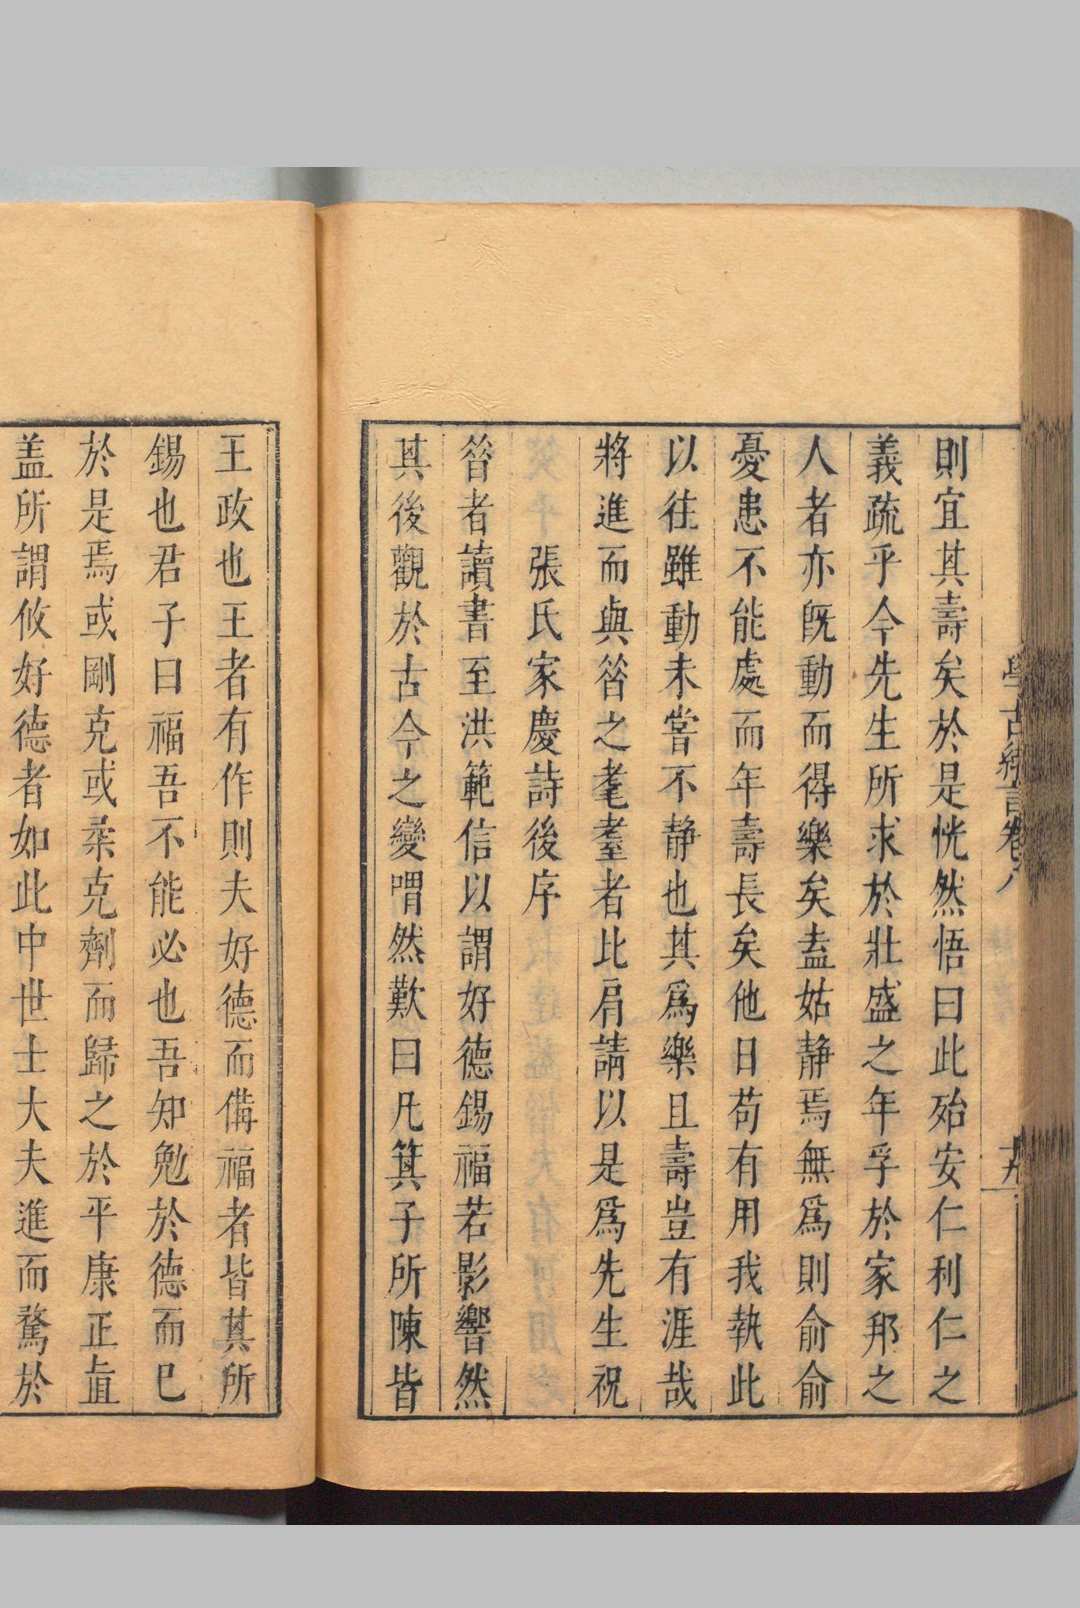 學古緒言卷八
十九
則宜其壽矣於是恍然悟曰此殆安仁利仁之
義疏乎今先生所求於壯盛之年孚於家邦之
人者亦既動而得樂矣盍姑静焉無爲則俞俞
憂患不能處而年壽長矣他日苟有用我執此
以往雖動未嘗不静也其爲樂且壽豈有涯哉
將進而與㗖之耄耋者比肩請以是爲先生祝
張氏家慶詩後序
㗖者讀書至洪範信以謂好德錫福若影響然
其後觀於古今之變喟然歎曰凡箕子所陳皆
王政也王者有作則夫好德而備福者皆其所
錫也君子曰福吾不能必也吾知勉於德而已
於是焉或剛克或柔克劑而歸之於平康正直
盖所謂攸好德者如此中世士大夫進而騖於